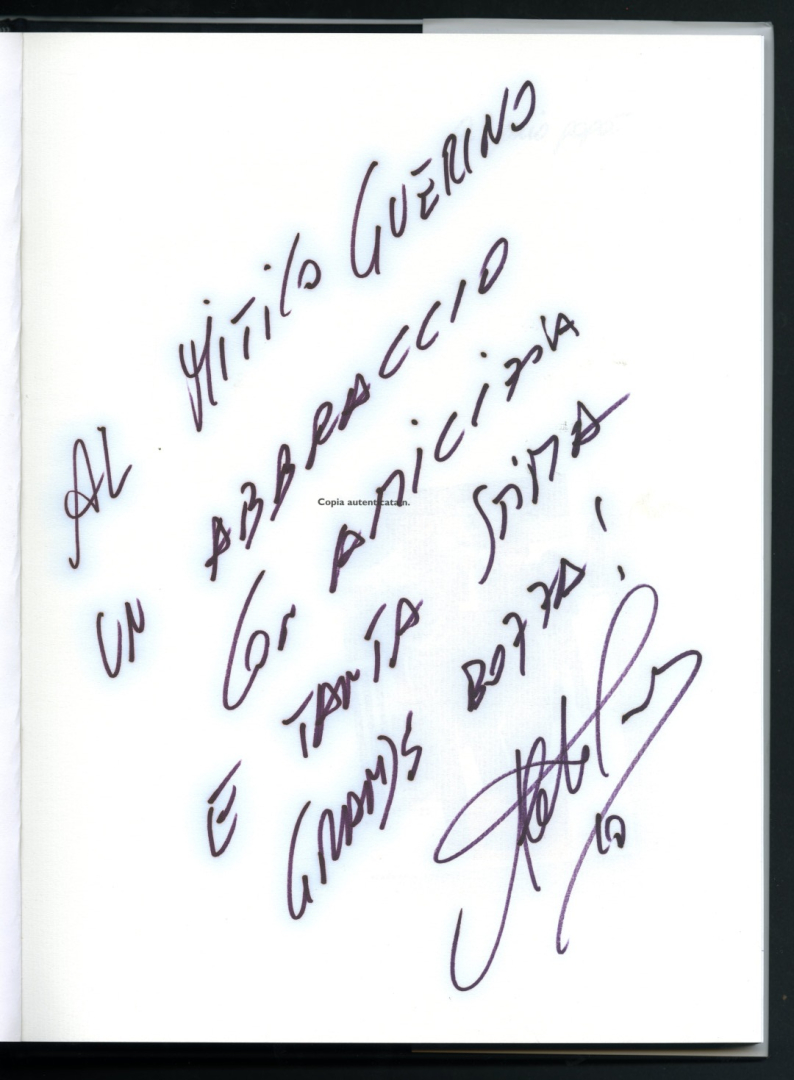 AL MITICO GUERINO
UN ABBRACCIO
Con AMICIZIA
E TANTA STIMA
GRANDE BOZZA!
10
Copia autenticata n.